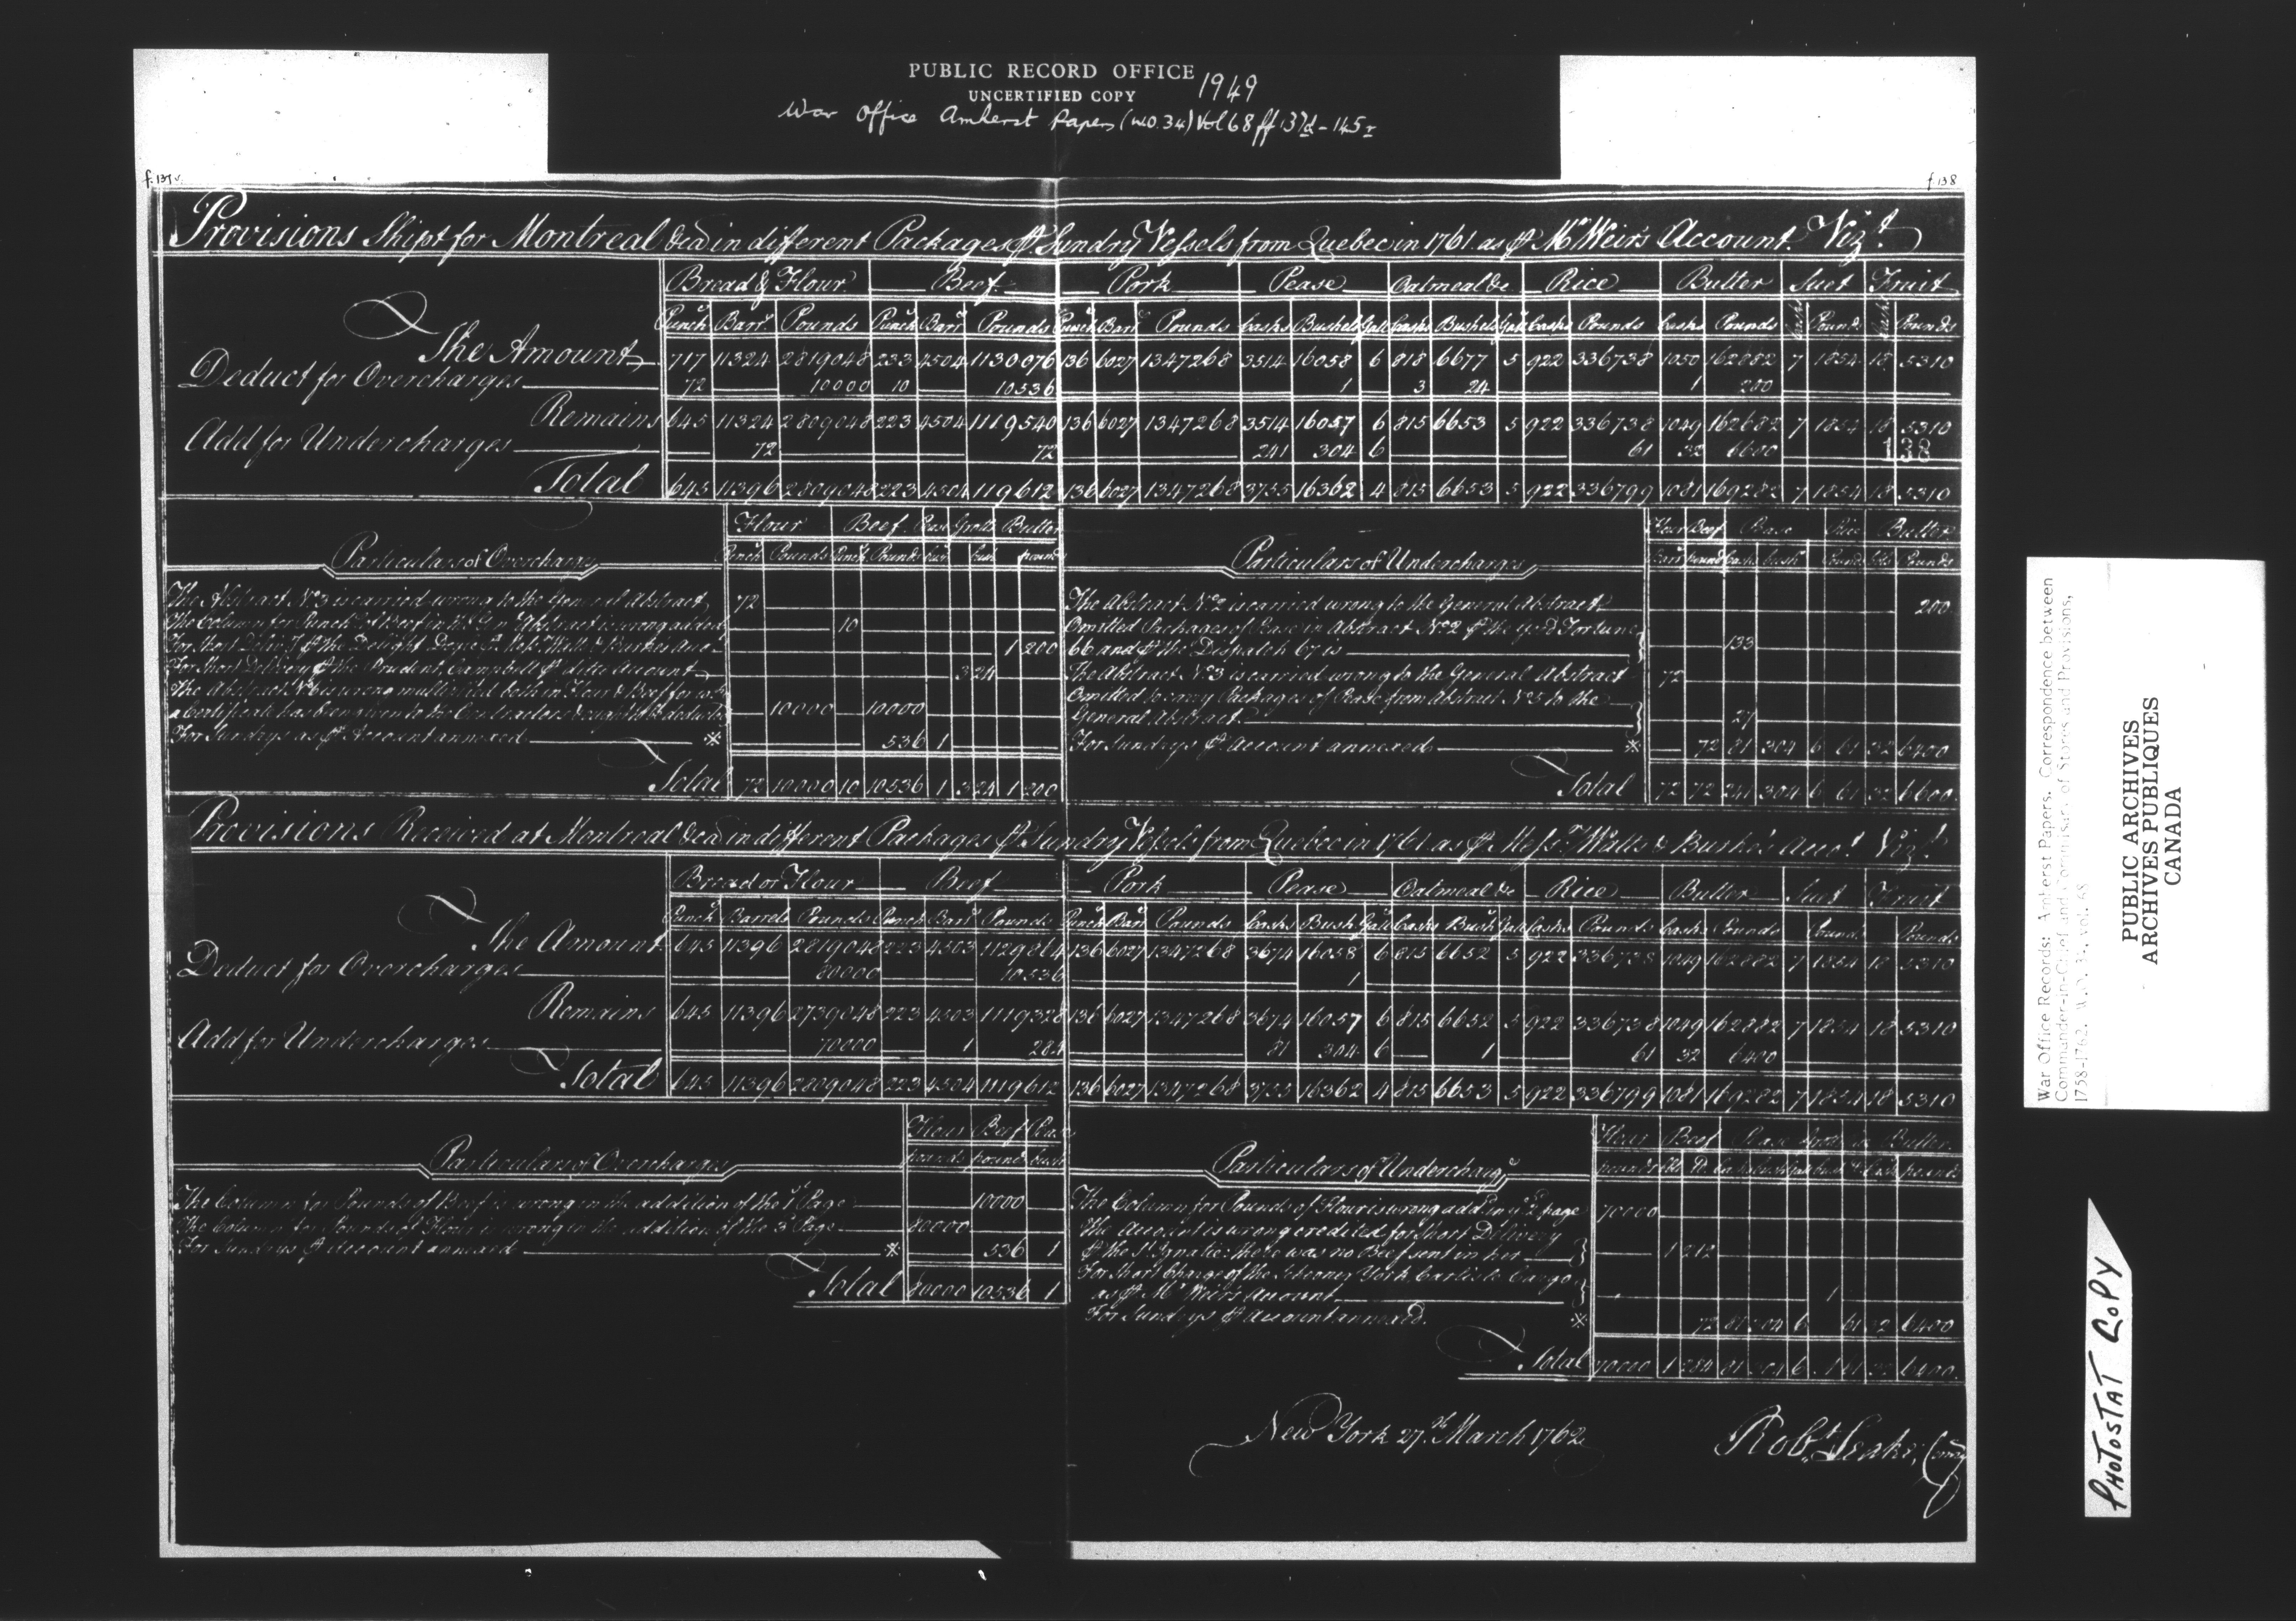 PUBLIC RECORD OFFICE 1949
UNCERTIFIED COPY
War Office Amherst Papers (W.O. 34) Vol 68 ff 137d - 145r
f. 137v.
f. 138
Provisions Shipt for Montreal &ca in different Packages ⅌ Sundry Vessels from Quebec in 1761 as ⅌ Mr Weir's Account. Vizt.
Bread & Flour Beef Pork Pease Oatmeal &c Rice Butter Suet Fruit
Punch Barrs Pounds Punch Barrs Pounds Punch Barrs Pounds Casks Bushels Gall Casks Bushels Gall Casks Pounds Casks Pounds Casks Pounds Casks Pounds
The Amount 717 11324 2819048 233 4504 1130076 136 6027 1347268 3514 16058 6 818 6677 5 922 336738 1050 162882 7 1854 18 5310
Deduct for Overcharges 72 10000 10 10536 1 3 24 1 200
Remains 645 11324 2809048 223 4504 1119540 136 6027 1347268 3514 16057 6 815 6653 5 922 336738 1049 162682 7 1854 18 5310
Add for Undercharges 72 72 241 304 6 61 32 6600
138
Total 645 11396 2809048 223 4504 119612 136 6027 1347268 3755 16362 4 815 6653 5 922 336799 1081 169282 7 1854 18 5310
Particulars of Overcharges
Flour Beef Pease Grotts Butter
Punch Pounds Punch Pounds bush bush pounds
The Abstract No 3 is carried wrong to the General Abstract 72
The Column for Punchs of Beef in the Gen Abstract is wrong added 10
For Short Delivy ⅌ the Delight Watts & Burke's Acco 1 200
For Short Delivery ⅌ the Prudent, Campbell ⅌ ditto Account 3 24
The Abstract No 6 is wrong multiplied both in Flour & Beef for wch
a Certificate has been given to the Contractors & ought to be deducted 10000 10000
For Sundrys as ⅌ Account annexed ※ 536 1
Total 72 10000 10 10536 1 3 24 1 200
Particulars of Undercharges
Flour Beef Pease Rice Butter
Barrs pounds Casks bush Pounds Pounds
The Abstract No 2 is carried wrong to the General Abstract 200
Omitted Packages of Pease in Abstract No 2 ⅌ the Good Fortune
66 and ⅌ the Dispatch 67 is 133
The Abstract No 3 is carried wrong to the General Abstract 72
Omitted to carry Packages of Pease from Abstract No 5 to the
General Abstract 27
For Sundrys ⅌ Account annexed ※ 72 81 304 6 61 32 6400
Total 72 72 241 304 6 61 32 6600
Provisions Received at Montreal &ca in different Packages ⅌ Sundry Vessels from Quebec in 1761 as ⅌ Messrs Watts & Burke's Acco.t Vizt.
Bread or Flour Beef Pork Pease Oatmeal &c Rice Butter Suet Fruit
Punch Barrels Pounds Punch Barrs Pounds Punch Barrs Pounds Casks Bush Gall Casks Bush Gall Casks Pounds Casks Pounds Pounds Pounds
The Amount 645 11396 2819048 223 4503 1129864 136 6027 1347268 3674 16058 6 815 6652 5 922 336738 1049 162882 7 1854 18 5310
Deduct for Overcharges 80000 10536 1
Remains 645 11396 2739048 223 4503 1119328 136 6027 1347268 3674 16057 6 815 6652 5 922 336738 1049 162882 7 1854 18 5310
Add for Undercharges 70000 1 284 81 304 6 1 61 32 6400
Total 645 11396 2809048 223 4504 1119612 136 6027 1347268 3755 16362 4 815 6653 5 922 336799 1081 169282 7 1854 18 5310
Particulars of Overcharges
Flour Beef Pease
pounds pounds bush
The Column for Pounds of Beef is wrong in the addition of the 1st Page 10000
The Column for Pounds of Flour is wrong in the addition of the 3d Page 80000
For Sundrys ⅌ Account annexed ※ 536 1
Total 80000 10536 1
Particulars of Undercharges
Flour Beef Pease Butter
The Column for Pounds of Flour is wrong add'd in ye 2d page 70000
The Account is wrong credited for Short Delivery
⅌ the St Ignatie: there was no Beef sent in her 1 212
For Short Charge of the Schooner York Carlisle Cargo
as ⅌ Mr Weir's Account 1
For Sundrys ⅌ Account annexed. ※ 72 81 304 6 61 32 6400
Total 70000 1 284 81 304 6 1 61 32 6400
New York 27th March 1762
Robt. Leake, Comy
War Office Records: Amherst Papers. Correspondence between
Commander-in-Chief and Commissary of Stores and Provisions,
1758-1762. W.O. 34, vol. 68
PUBLIC ARCHIVES
ARCHIVES PUBLIQUES
CANADA
PHOTOSTAT COPY